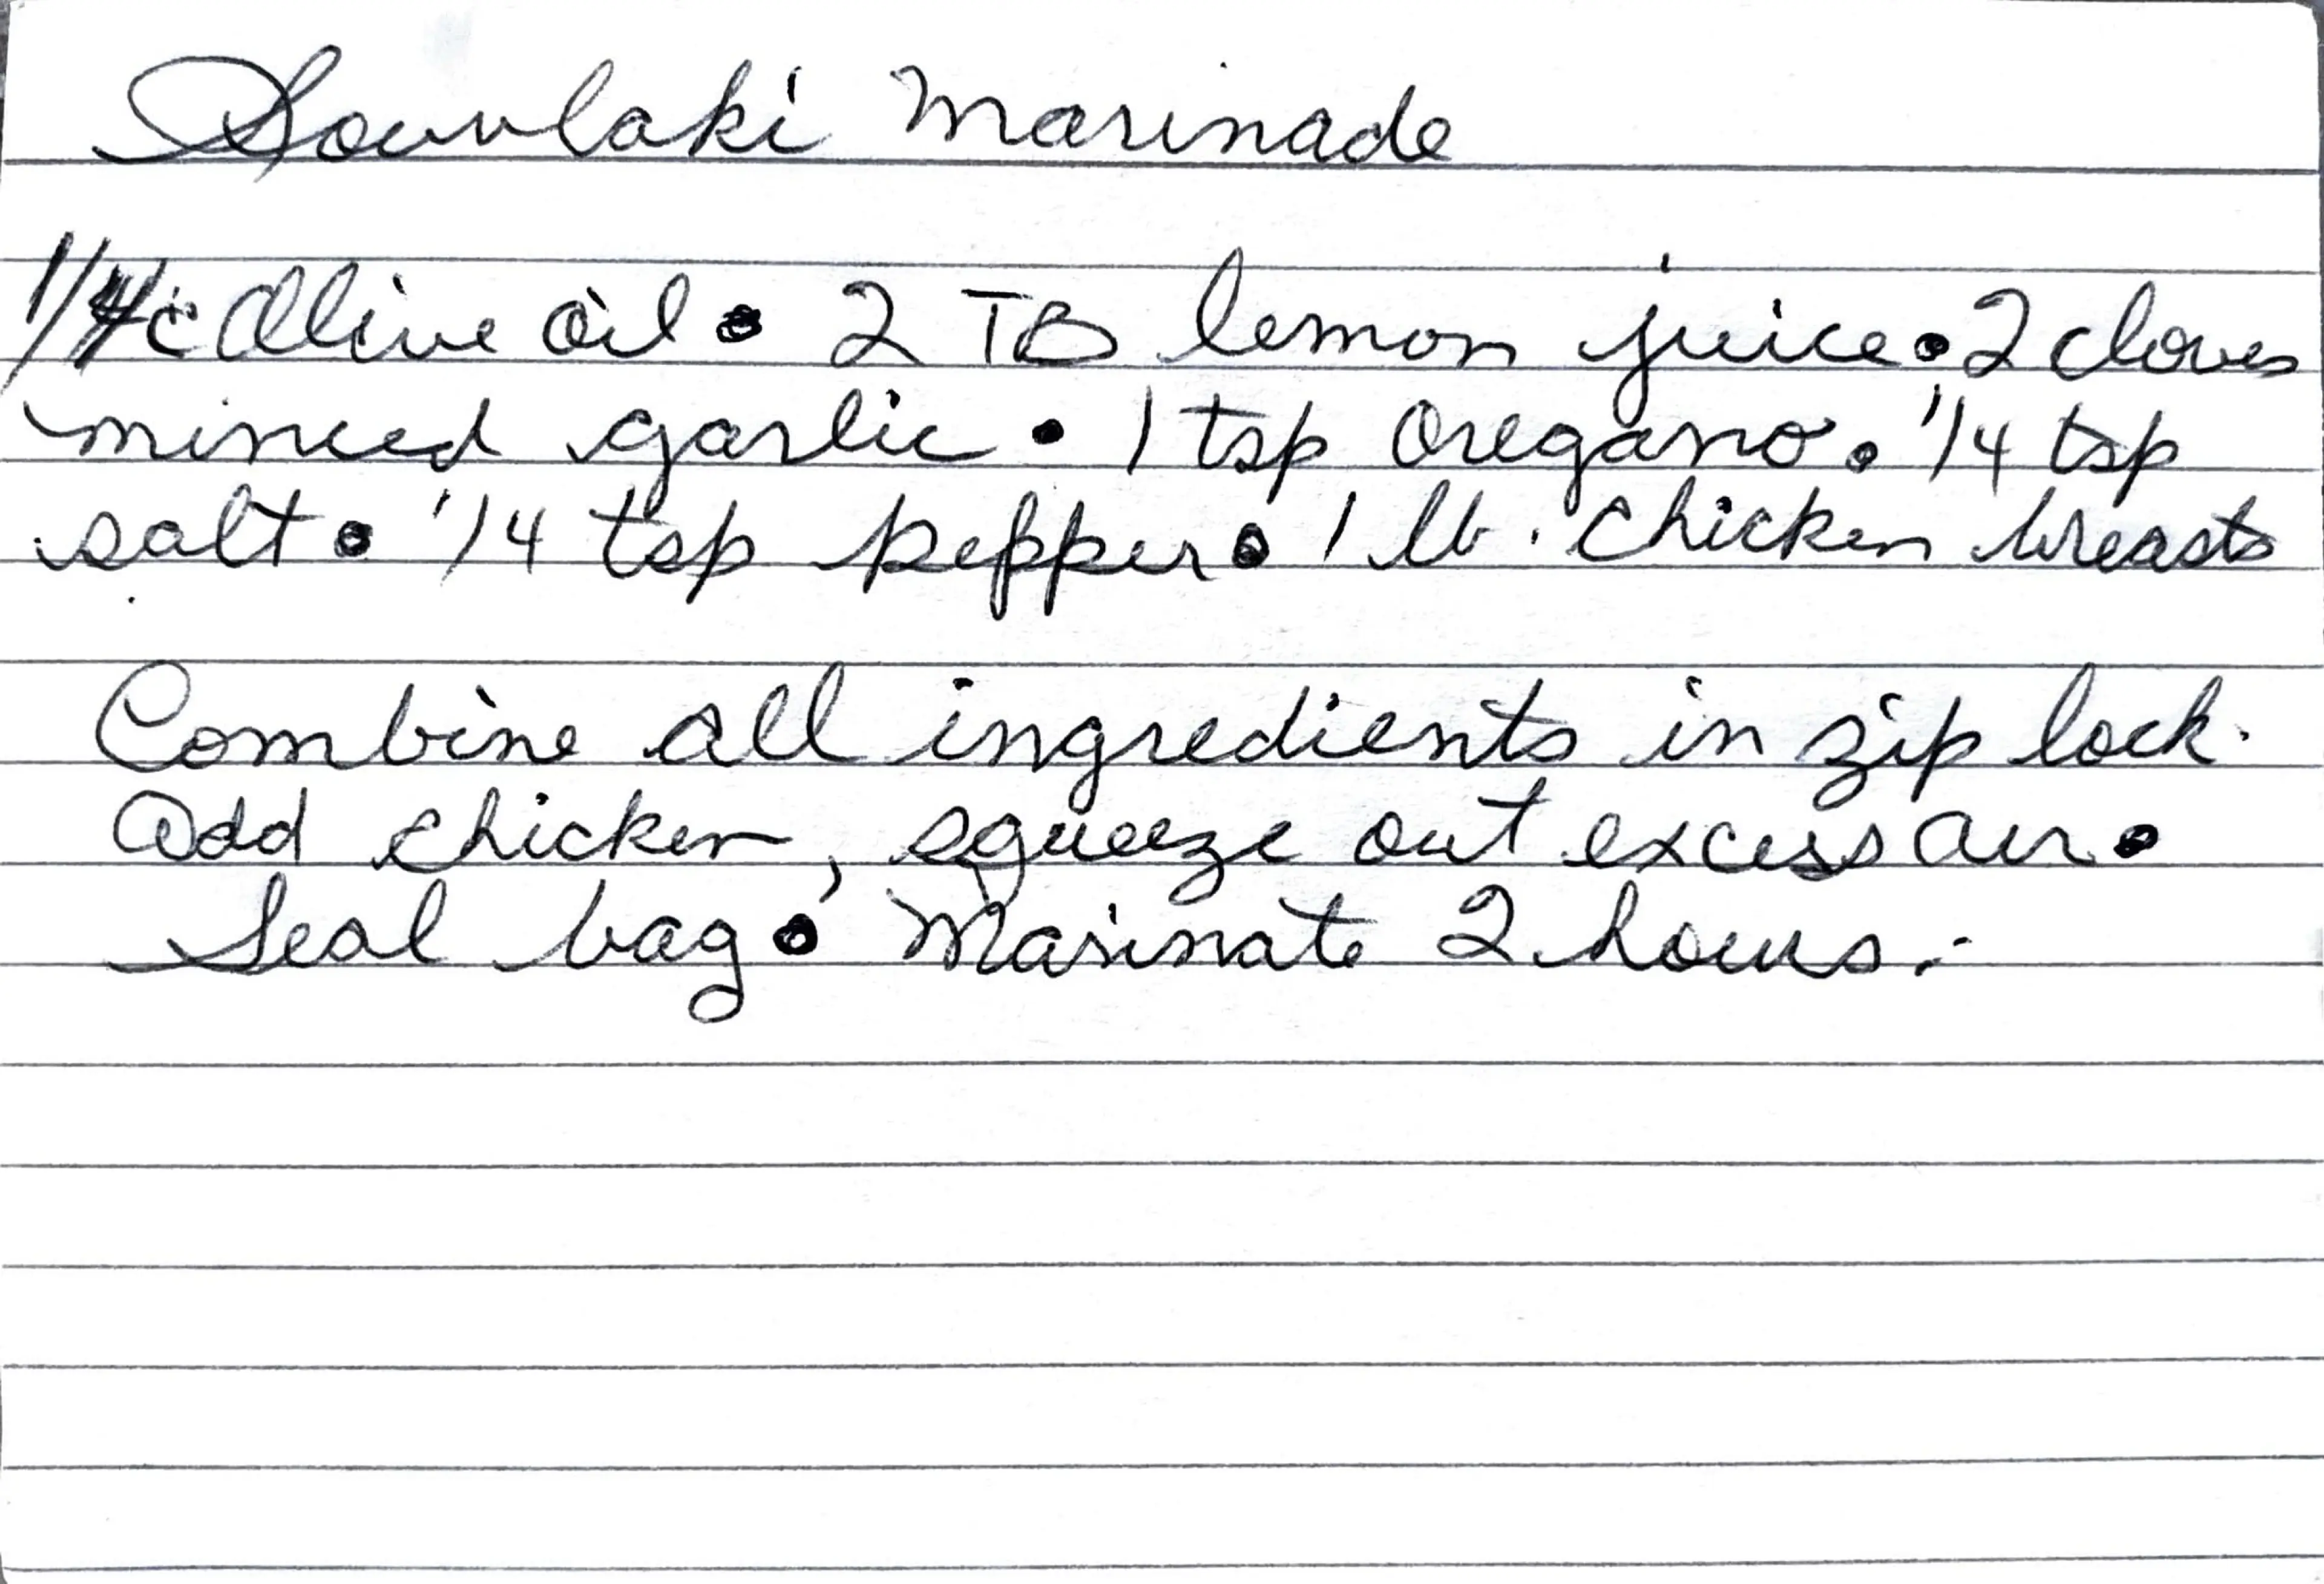 Souvlaki Marinade
1/4 c Olive oil • 2 TB lemon juice • 2 cloves
minced garlic • 1 tsp Oregano • 1/4 tsp
salt • 1/4 tsp pepper • 1 lb. chicken breasts
Combine all ingredients in zip lock.
Add chicken, squeeze out excess air •
Seal bag • Marinate 2 hours.